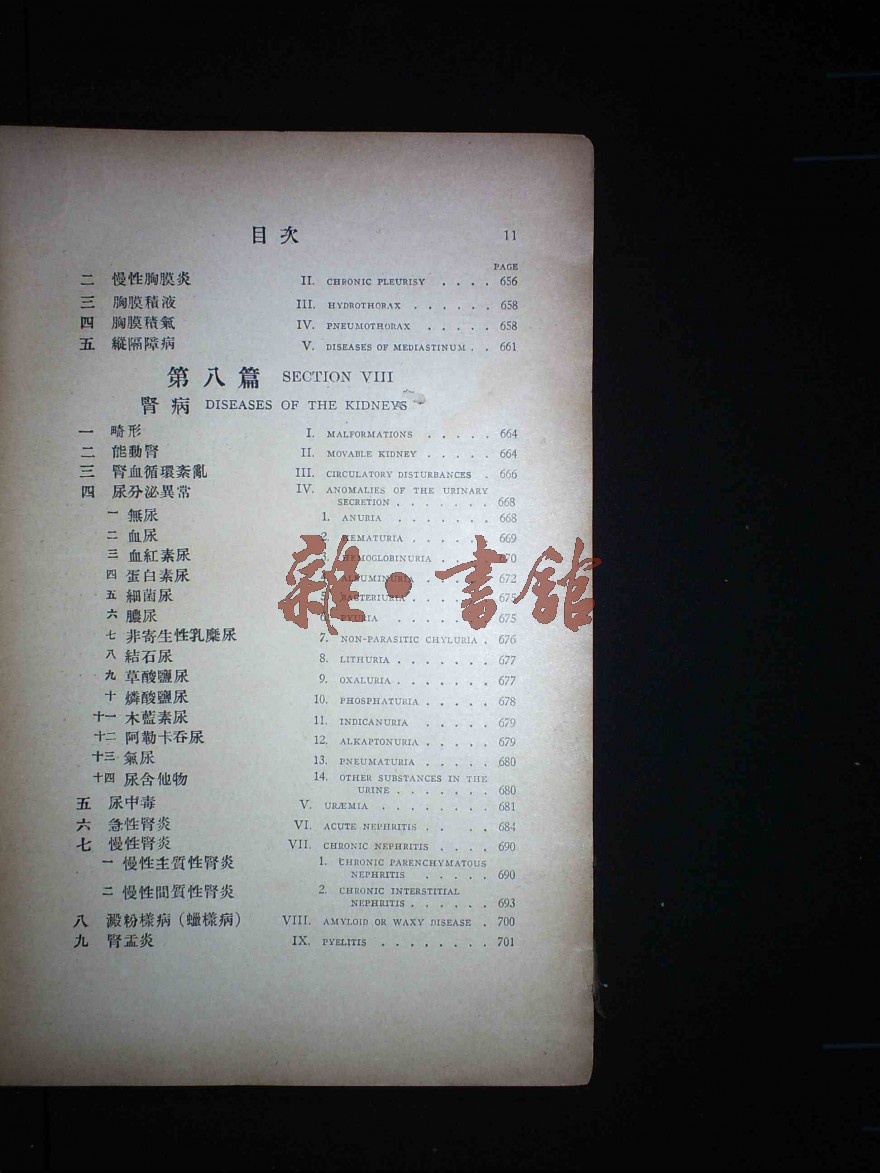 目次 11
PAGE
二 慢性胸膜炎 II. CHRONIC PLEURISY . . . . 656
三 胸膜積液 III. HYDROTHORAX . . . . . . 658
四 胸膜積氣 IV. PNEUMOTHORAX . . . . . 658
五 縱隔障病 V. DISEASES OF MEDIASTINUM . . 661
第八篇 SECTION VIII
腎病 DISEASES OF THE KIDNEYS
一 畸形 I. MALFORMATIONS . . . . . 664
二 能動腎 II. MOVABLE KIDNEY . . . . . 664
三 腎血循環紊亂 III. CIRCULATORY DISTURBANCES . 666
四 尿分泌異常 IV. ANOMALIES OF THE URINARY
SECRETION . . . . . . . 668
一 無尿 1. ANURIA . . . . . . . 668
二 血尿 2. HEMATURIA . . . . . . 669
三 血紅素尿 3. HEMOGLOBINURIA . . . . 670
四 蛋白素尿 ALBUMINURIA . . . . . 672
五 細菌尿 5. BACTERIURIA . . . . . 675
六 膿尿 6. PYURIA . . . . . . . 675
七 非寄生性乳糜尿 7. NON-PARASITIC CHYLURIA . 676
八 結石尿 8. LITHURIA . . . . . . . 677
九 草酸鹽尿 9. OXALURIA . . . . . . . 677
十 燐酸鹽尿 10. PHOSPHATURIA . . . . . 678
十一 木藍素尿 11. INDICANURIA . . . . . 679
十二 阿勒卡吞尿 12. ALKAPTONURIA . . . . . 679
十三 氣尿 13. PNEUMATURIA . . . . . 680
十四 尿含他物 14. OTHER SUBSTANCES IN THE
URINE . . . . . . . 680
五 尿中毒 V. URÆMIA . . . . . . . . 681
六 急性腎炎 VI. ACUTE NEPHRITIS . . . . 684
七 慢性腎炎 VII. CHRONIC NEPHRITIS . . . . 690
一 慢性主質性腎炎 1. CHRONIC PARENCHYMATOUS
NEPHRITIS . . . . . 690
二 慢性間質性腎炎 2. CHRONIC INTERSTITIAL
NEPHRITIS . . . . . . 693
八 澱粉樣病（蠟樣病） VIII. AMYLOID OR WAXY DISEASE . 700
九 腎盂炎 IX. PYELITIS . . . . . . . . 701
雜·書館